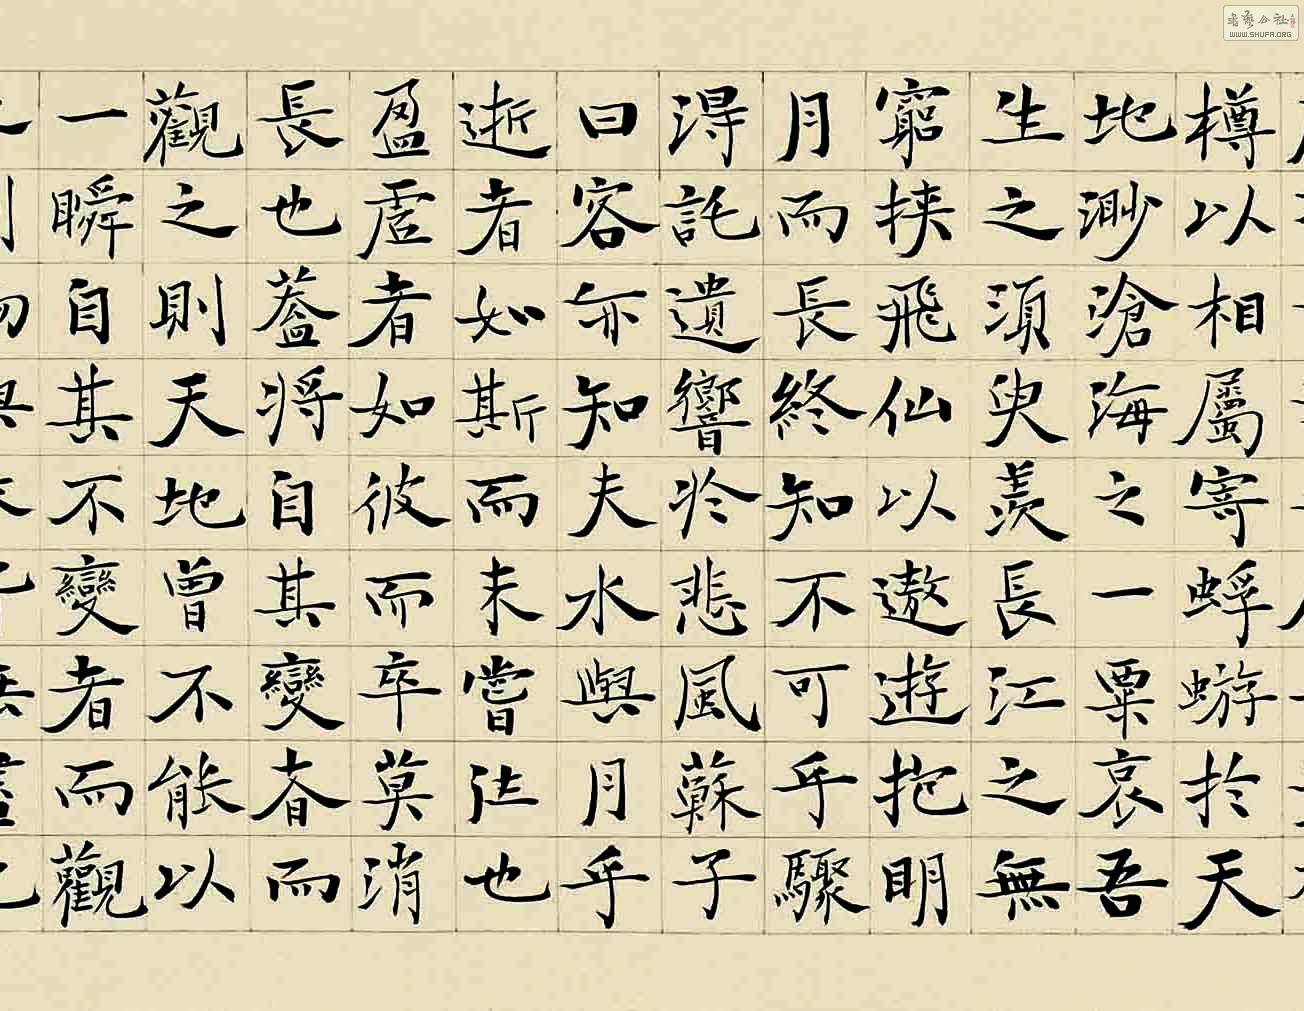 樽以相屬寄蜉蝣於天
地渺滄海之一粟哀吾
生之須臾羨長江之無
窮挾飛仙以遨遊抱明
月而長終知不可乎驟
得託遺響於悲風蘇子
曰客亦知夫水與月乎
逝者如斯而未嘗往也
盈虛者如彼而卒莫消
長也蓋將自其變者而
觀之則天地曾不能以
一瞬自其不變者而觀
書藝公社
WWW.SHUFA.ORG